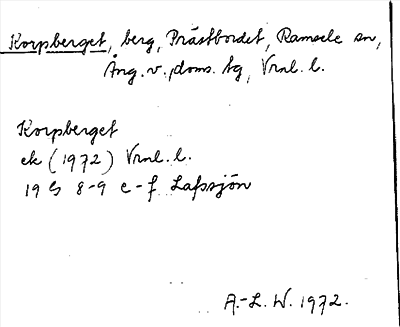 Korpberget, berg, Prästbordet, Ramsele sn,
Ång. v. doms. tg, Vrnl. l.
Korpberget
ek (1972) Vrnl. l.
19 G 8-9 e-f Lafssjön
A.-L. W. 1972.